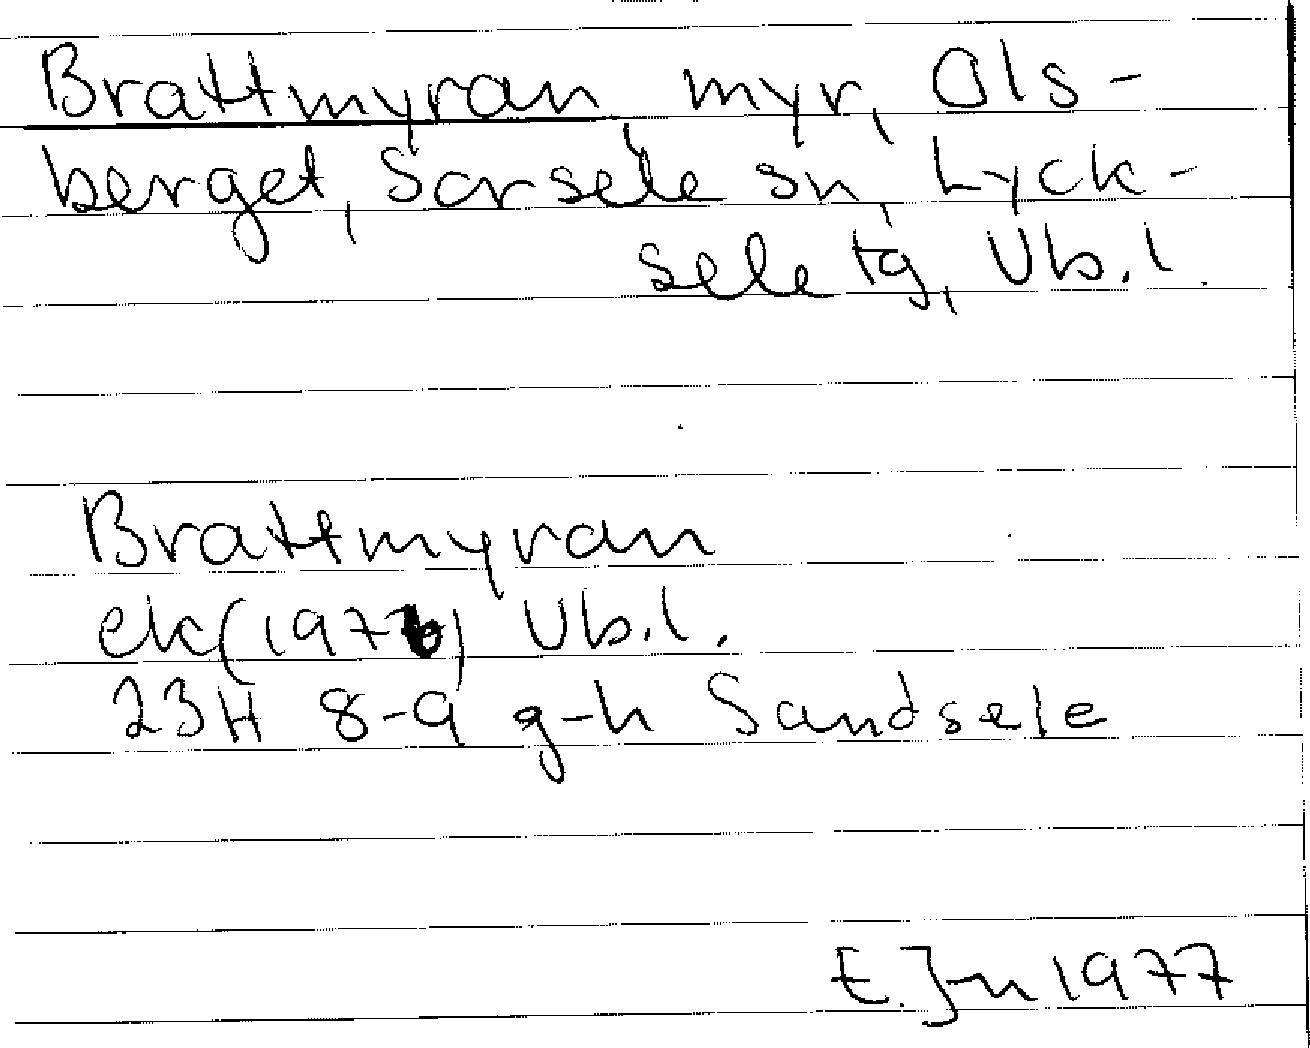 Brattmyran myr, Ols-
berget, Sorsele sn, Lyck-
sele tg, Vb.l
Brattmyran
ek(1976) Vb.l.
23H 8-9 g-h Sandsele
E. J-n 1977